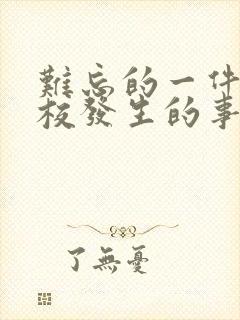 難忘的一件
校發生的事
了無憂